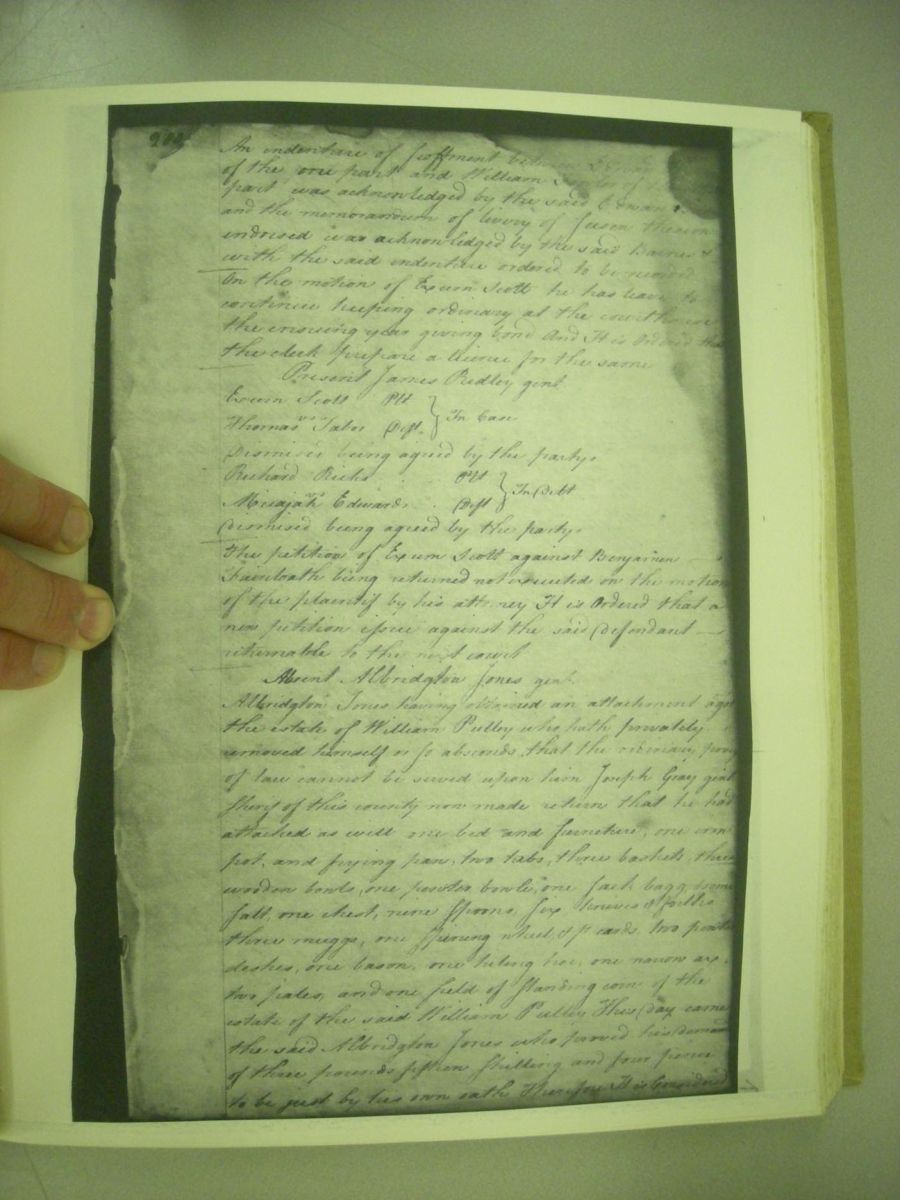 An indenture of feoffment between
of the one part and William
part was acknowledged by the said
and the memorandum of livery of seisen thereon
indorsed was acknowledged by the said Barnes &
with the said indenture ordered to be record
On the motion of Exum Scott he has leave to
continue keeping ordinary at the courthouse
the ensuing year giving bond And It is Ordered that
the clerk prepare a licence for the same
Present James Ridley gent
Exum Scott Plt
vs
Thomas Tabor Deft. } In Case
Dismised being agreed by the partys
Richard Ricks Plt
vs
Micajah Edwards Deft } In Debt
Dismised being agreed by the partys
The petition of Exum Scott against Benjamin
being returned not executed on the motion
of the plaintif by his attorney It is Ordered that a
new petition issue against the said Defendant
returnable to the next court
Absent Albridgton Jones gent.
Albridgton Jones having obtained an attachment agst
the estate of William Pulley who hath privately
removed himself or so absconds that the ordinary
of law cannot be served upon him Joseph Gray gent
sherif of this county now made return that he had
attached as will one bed and furniture, one iron
pot, and frying pan, two tubs, three baskets, three
wooden bowls, one pewter bowle, one sack bagg, some
salt, one chest, nine spoons, six knives & forks
three muggs, one spining wheel & pr cards, two
dishes, one bason, one hileng hoe, one narrow ax,
two pales, and one field of standing corn of the
estate of the said William Pulley This Day came
the said Albridgton Jones who proved his Demand
of three pounds fifteen shilling and four pence
to be just by his own oath Therefore It is Considered